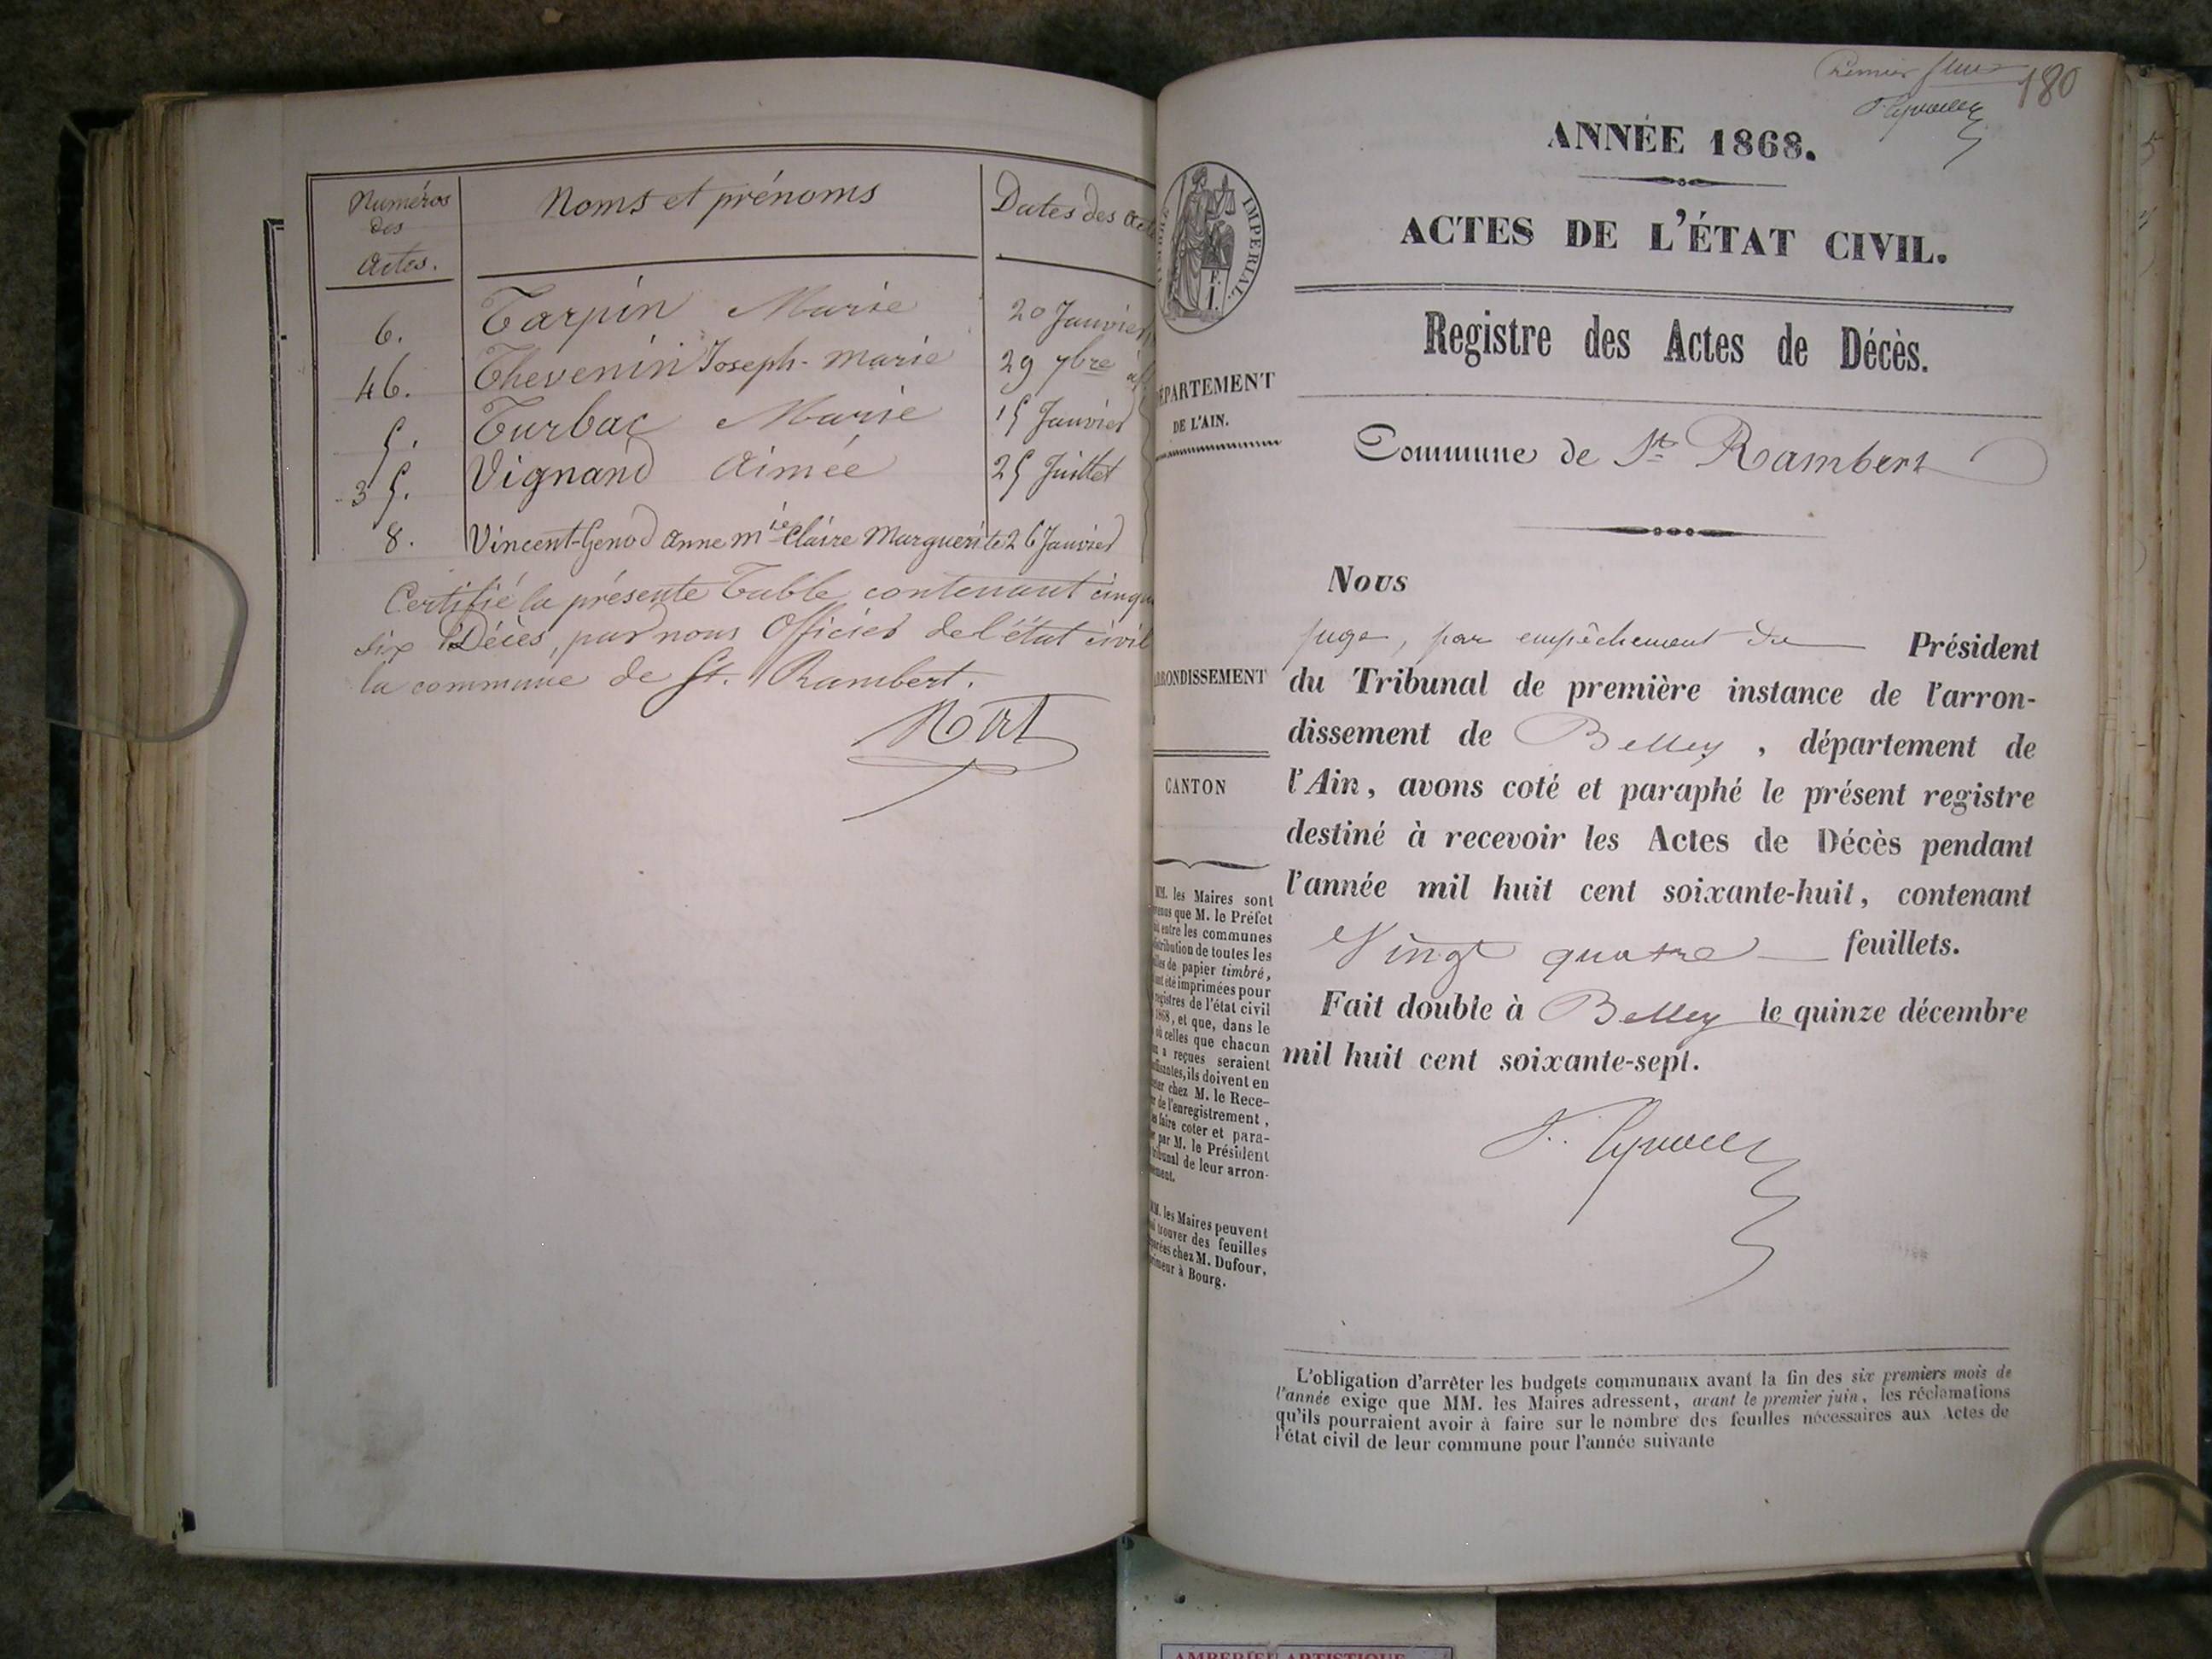 Numéros
des
Actes.
Noms et prénoms
Dates des Act
6. Tarpin Marie 20 Janvier
46. Thevenin Joseph-Marie 29 7bre
5. Turbac Marie 15 Janvier
35. Vignand Aimée 25 Juillet
8. Vincent-Genod Anne Mie Claire Marguerite 26 Janvier
Certifié la présente Table contenant cinqu
six Décès, par nous Officier de l'état civil
la commune de St. Rambert.
Premier
180
ANNÉE 1868.
ACTES DE L'ÉTAT CIVIL.
Registre des Actes de Décès.
Commune de St Rambert
TIMBRE IMPÉRIAL.
F.
1.
ÉPARTEMENT
DE L'AIN.
RRONDISSEMENT
CANTON
MM. les Maires sont
venus que M. le Préfet
entre les communes
stribution de toutes les
lles de papier timbré,
ant été imprimées pour
registres de l'état civil
1868, et que, dans le
où celles que chacun
a reçues seraient
ffisantes, ils doivent en
eter chez M. le Rece-
r de l'enregistrement,
es faire coter et para-
r par M. le Président
tribunal de leur arron-
ement.
MM. les Maires peuvent
trouver des feuilles
parées chez M. Dufour,
primeur à Bourg.
Nous
juge, par empêchement du Président
du Tribunal de première instance de l'arron-
dissement de Belley, département de
l'Ain, avons coté et paraphé le présent registre
destiné à recevoir les Actes de Décès pendant
l'année mil huit cent soixante-huit, contenant
Vingt quatre feuillets.
Fait double à Belley le quinze décembre
mil huit cent soixante-sept.
L'obligation d'arrêter les budgets communaux avant la fin des six premiers mois de
l'année exige que MM. les Maires adressent, avant le premier juin, les réclamations
qu'ils pourraient avoir à faire sur le nombre des feuilles nécessaires aux Actes de
l'état civil de leur commune pour l'année suivante
AMBERIEU ARTISTIQUE